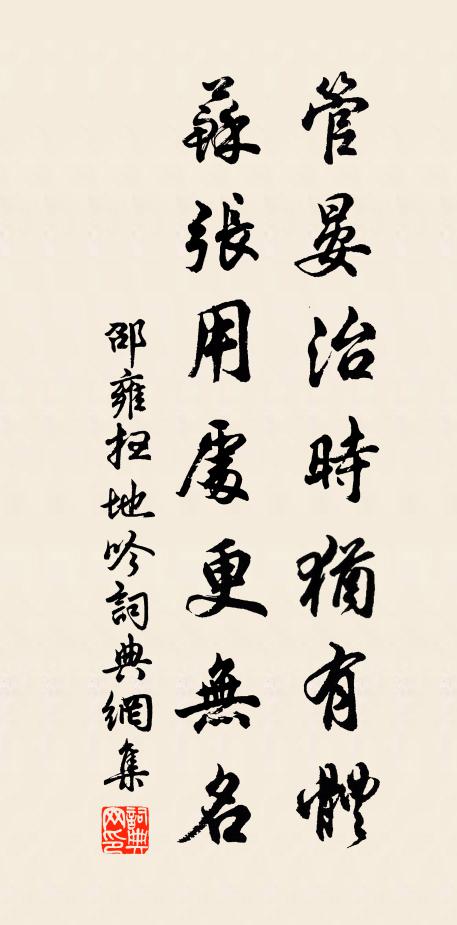 管晏治時猶有體
蘇張用處更無名
邵雍扫地吟詞典網集
詞典网印